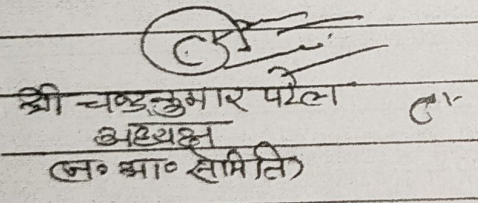 श्री चन्द्रकुमार पटेल
अध्यक्ष
(ज॰ भा॰ समिति)